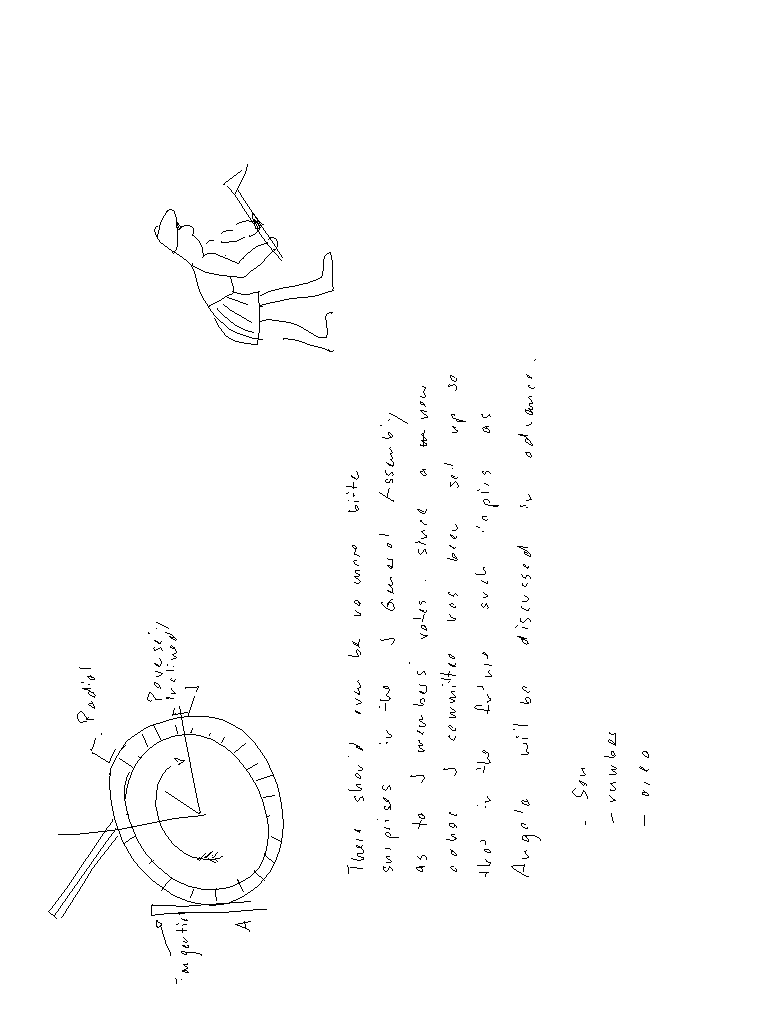 Radial
Reversely
inclined
Tangential
A
There should even be no more bitte
surprises in the J General Assembly
as to J members' votes. Since a new
adhoc J committee has been set up so
that in the future such topics as
Angola will be discussed in advance.
- Son
- number
- area